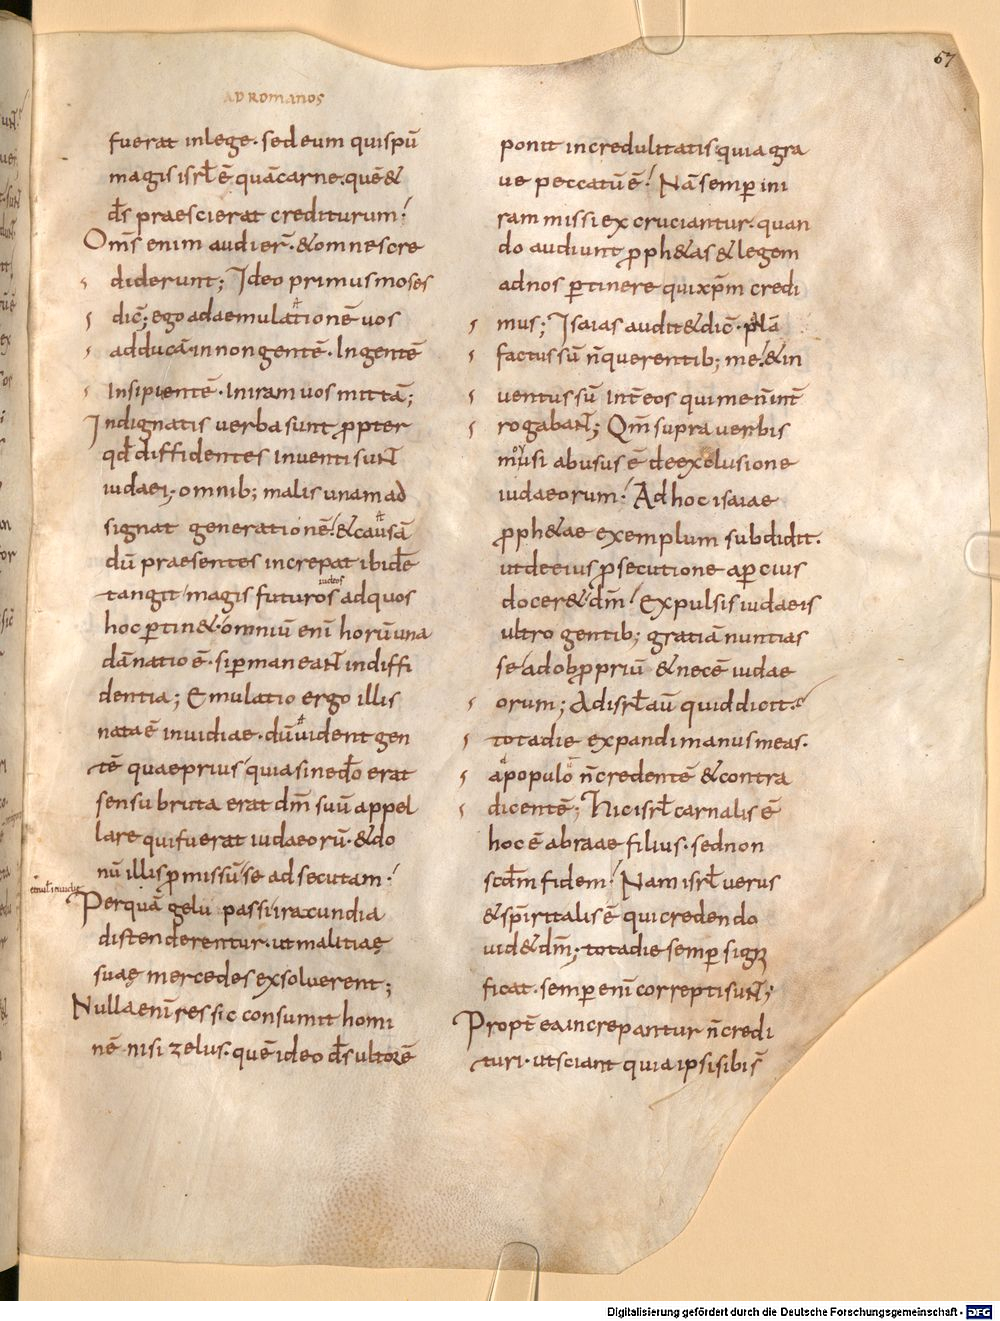 67
AD ROMANOS
fuerat inlege· sed eum quispū
magis isrl̄ ē quā carne· quē &
d̄s praescierat crediturum·
Om̄s enim audier̄· & omnes cre
diderunt; Ideo primus moses
dic̄; ego ad aemulationē uos
adducā· in non gentē· In gentē
Insipientē· In iram uos mittā;
Indignatis uerba sunt ꝓpter
qđ diffidentes inuenti sunt
iudaei· omnib; malis unam ad
signat generationē· & causā
dū praesentes increpat ibidē
tangit magis futuros ad quos
iudeos
hoc ꝑtin&· omniū enī horū una
dānatio ē· si ꝑmaneant in diffi
dentia; Emulatio ergo illis
nata ē inuidiae· dū uident gen
tē quae prius quia sine đo erat
sensu bruta erat dm̄ suū appel
lare qui fuerat iudaeorū· & do
nū illis ꝓmissū se adsecutam·
Perquā gelu passi iracundia
distenderentur· ut malitiaę
suaę mercedes exsoluerent;
Nulla enī res sic consumit homi
nē nisi zelus· quē ideo d̄s ultorē
ponit incredulitatis· quia gra
ue peccatū ē· Nā semꝑ in i
ram missi excruciantur· quan
do audiunt ꝓph&as & legem
ad nos ꝑtinere qui xp̄m credi
mus; Isaias audit & dic̄· palā
factus sū n̄ querentib; me· & in
uentus sū int̄ eos qui me n̄ int̄
rogabant; Qm̄ supra uerbis
mosi abusus ē de exclusione
iudaeorum· Ad hoc isaiae
ꝓph&ae exemplum subdidit·
ut de eius ꝑsecutione aꝑcius
docer& dm̄ expulsis iudaeis
ultro gentib; gratiā nuntias
se· ad obꝓpriū & necē iudae
orum; Ad isrl̄ aū quid dicit·
tota die expandi manus meas·
a populo n̄ credentē & contra
dicentē; Hic isrl̄ carnalis ē
hoc ē abraae filius· sed non
scdm̄ fidem· Nam isrl̄ uerus
& spiritalis ē qui credendo
uid& dm̄; tota die semꝑ signi
ficat· semꝑ enī correpti sunt;
Propt̄ ea increpantur n̄ credi
turi· ut sciant quia ipsi sibi s̄
Digitalisierung gefördert durch die Deutsche Forschungsgemeinschaft - DFG